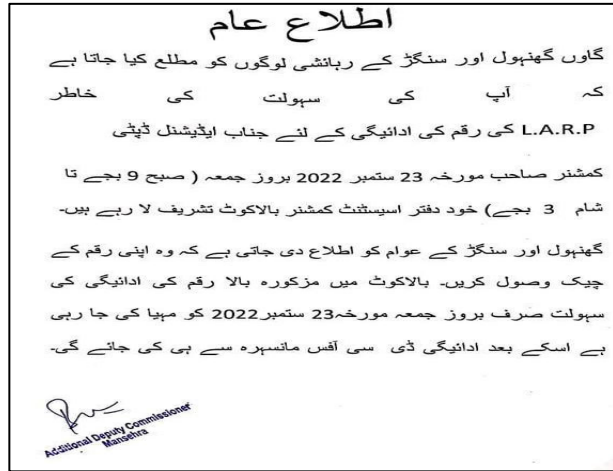 اطلاع عام
گاوں گھنہول اور سنگڑ کے رہائشی لوگوں کو مطلع کیا جاتا ہے
کہ آپ کی سہولت کی خاطر
L.A.R.P کی رقم کی ادائیگی کے لئے جناب ایڈیشنل ڈپٹی
کمشنر صاحب مورخہ 23 ستمبر 2022 بروز جمعہ ( صبح 9 بجے تا
شام 3 بجے) خود دفتر اسیسٹنٹ کمشنر بالاکوٹ تشریف لا رہے ہیں۔
گھنہول اور سنگڑ کے عوام کو اطلاع دی جاتی ہے کہ وہ اپنی رقم کے
چیک وصول کریں۔ بالاکوٹ میں مزکورہ بالا رقم کی ادائیگی کی
سہولت صرف بروز جمعہ مورخہ23 ستمبر2022 کو مہیا کی جا رہی
ہے اسکے بعد ادائیگی ڈی سی آفس مانسہرہ سے ہی کی جائے گی۔
Additional Deputy Commissioner
Mansehra